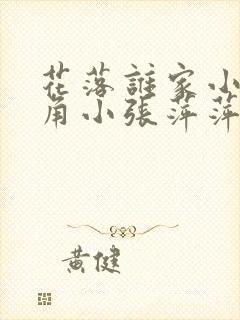 花落誰家小
角小張萍萍
黃健